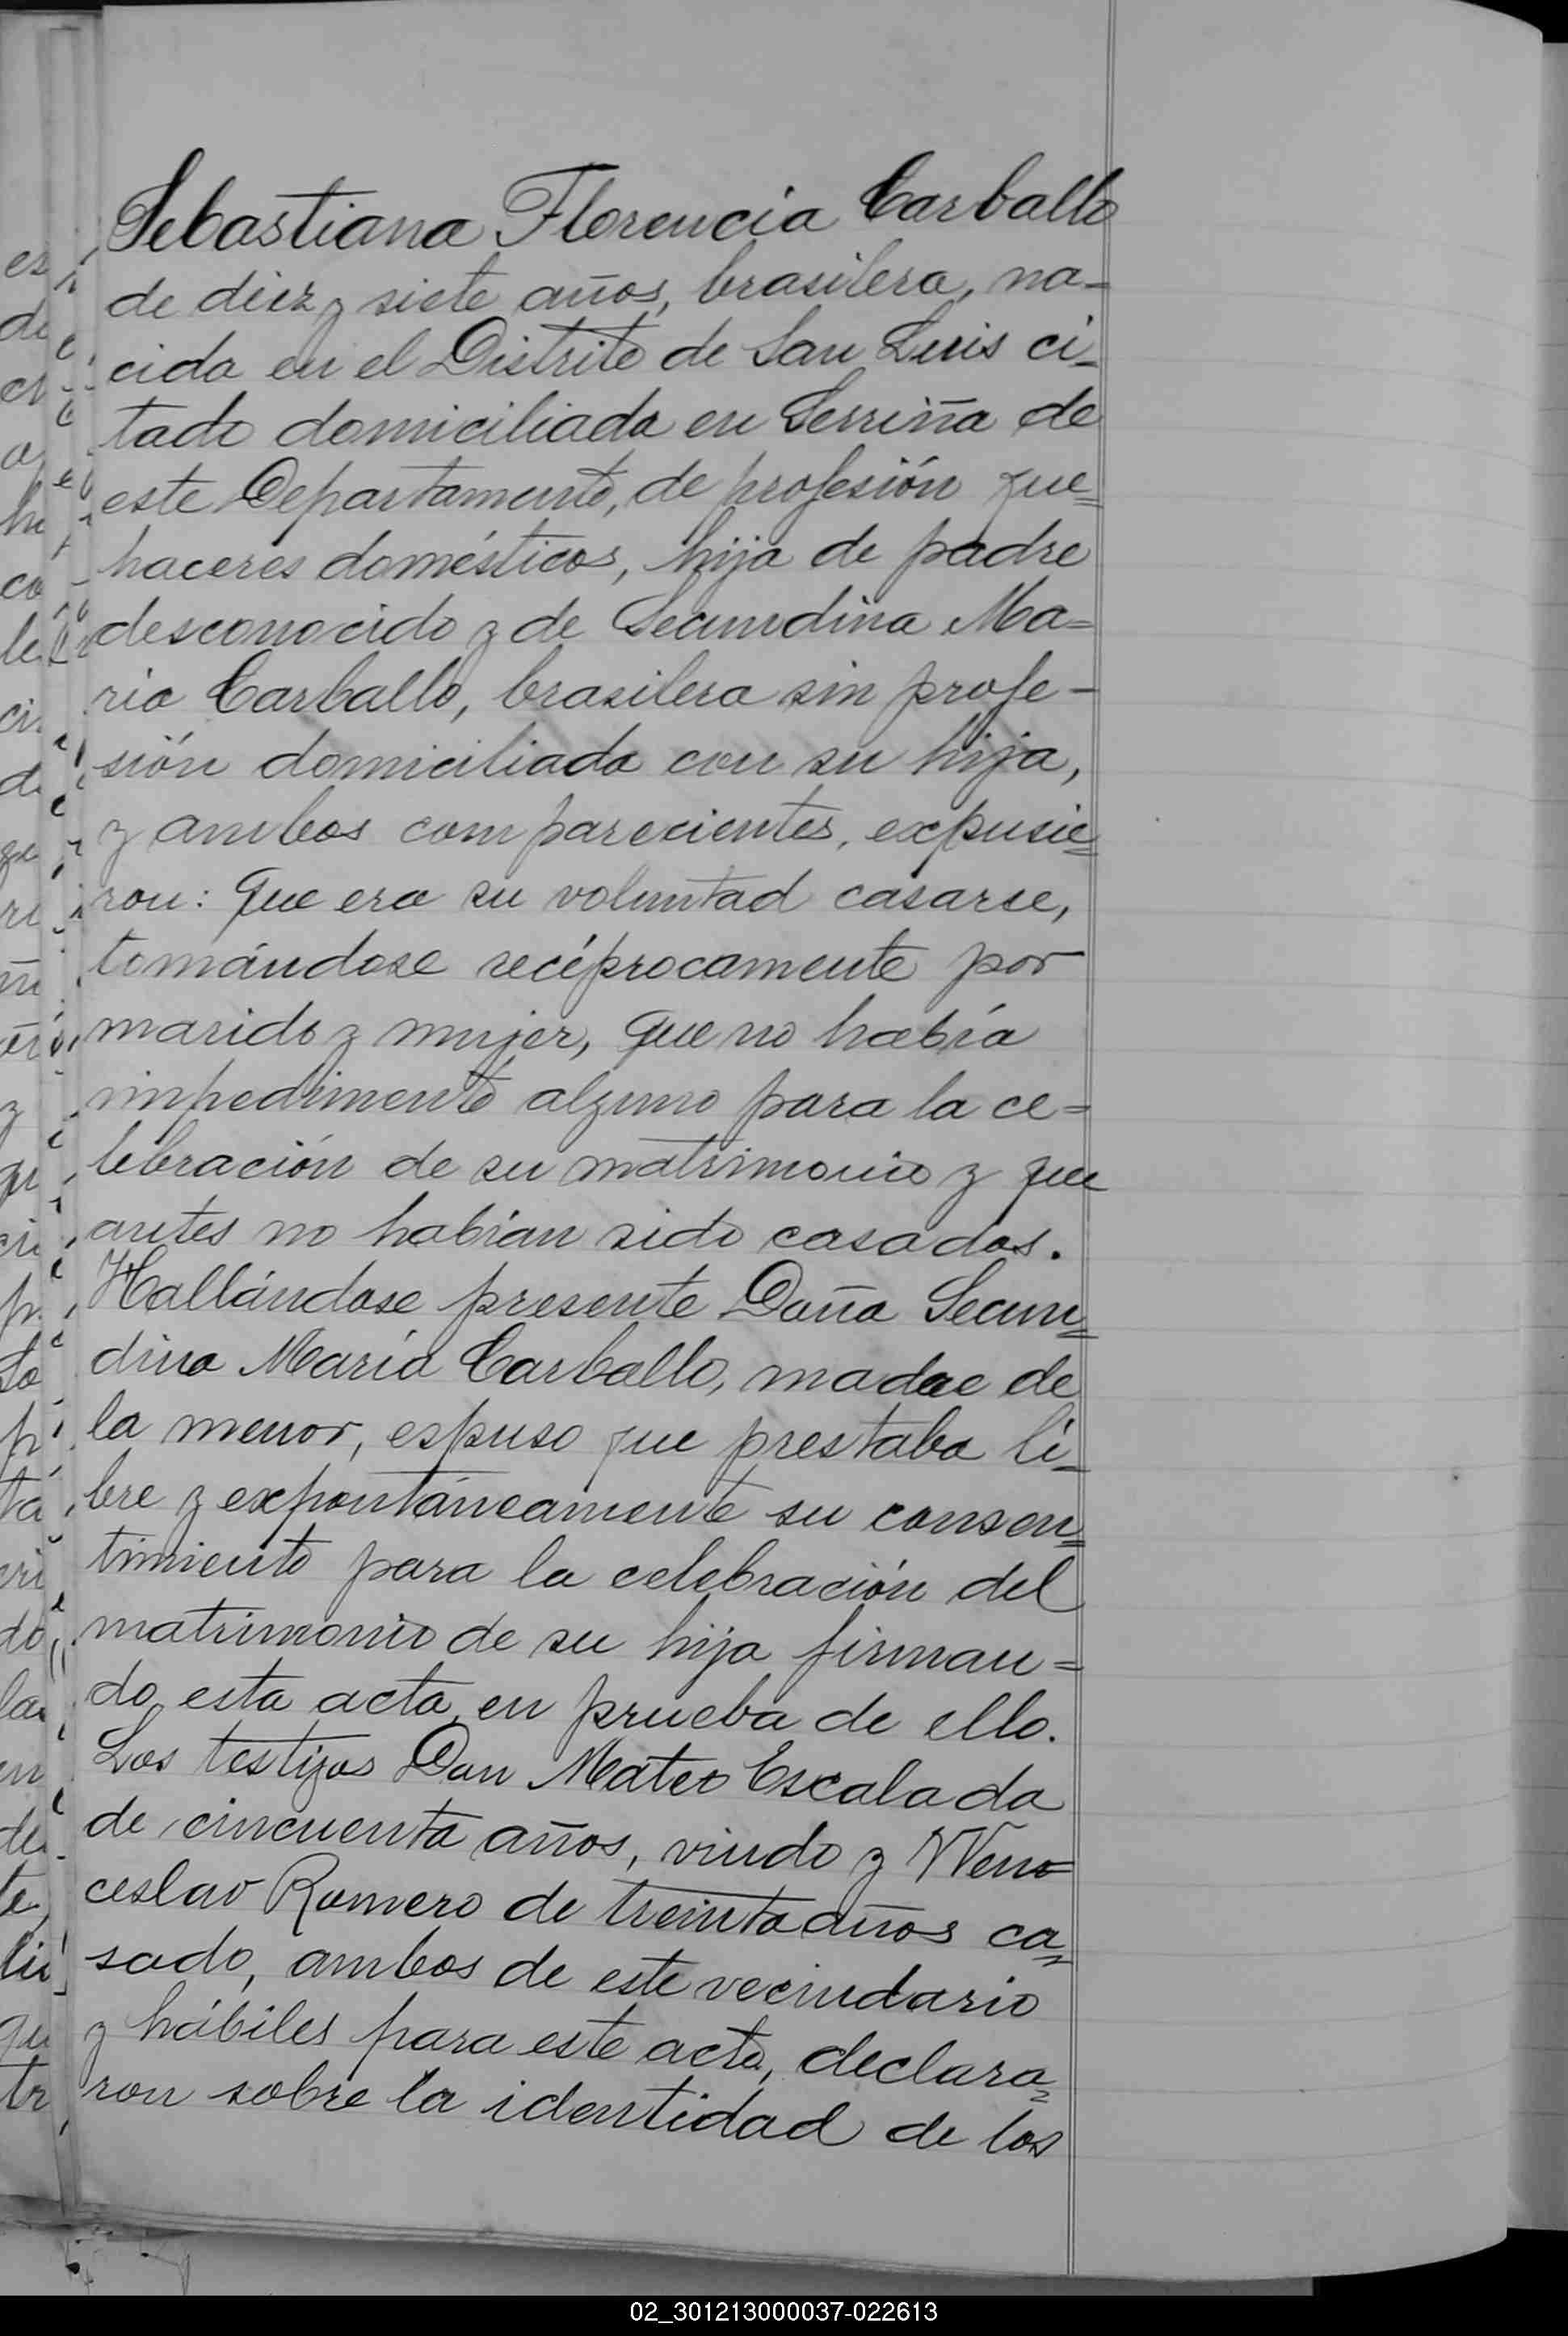 Sebastiana Florencia Carballo
de diez y siete años, brasilera, na-
cida en el Distrito de San Luis ci-
tado domiciliada en Serriña de
este Departamento, de profesión que=
haceres domésticos, hija de padre
desconocido y de Secundina Ma=
ria Carballo, brasilera sin profe-
sión domiciliada con su hija,
y ambos comparecientes, expusie=
ron: Que era su voluntad casarse,
tomándose recíprocamente por
marido y mujer, que no había
impedimento alguno para la ce=
lebración de su matrimonio y que
antes no habían sido casados.
Hallándose presente Doña Secun=
dina María Carballo, madre de
la menor, espuso que prestaba li-
bre y expontáneamente su consen=
timiento para la celebración del
matrimonio de su hija firman=
do esta acta en prueba de ello.
Los testigos Don Mateo Escalada
de cincuenta años, viudo y Wen=
ceslao Romero de treinta años ca=
sado, ambos de este vecindario
y hábiles para este acto, declara=
ron sobre la identidad de los
02_301213000037-022613